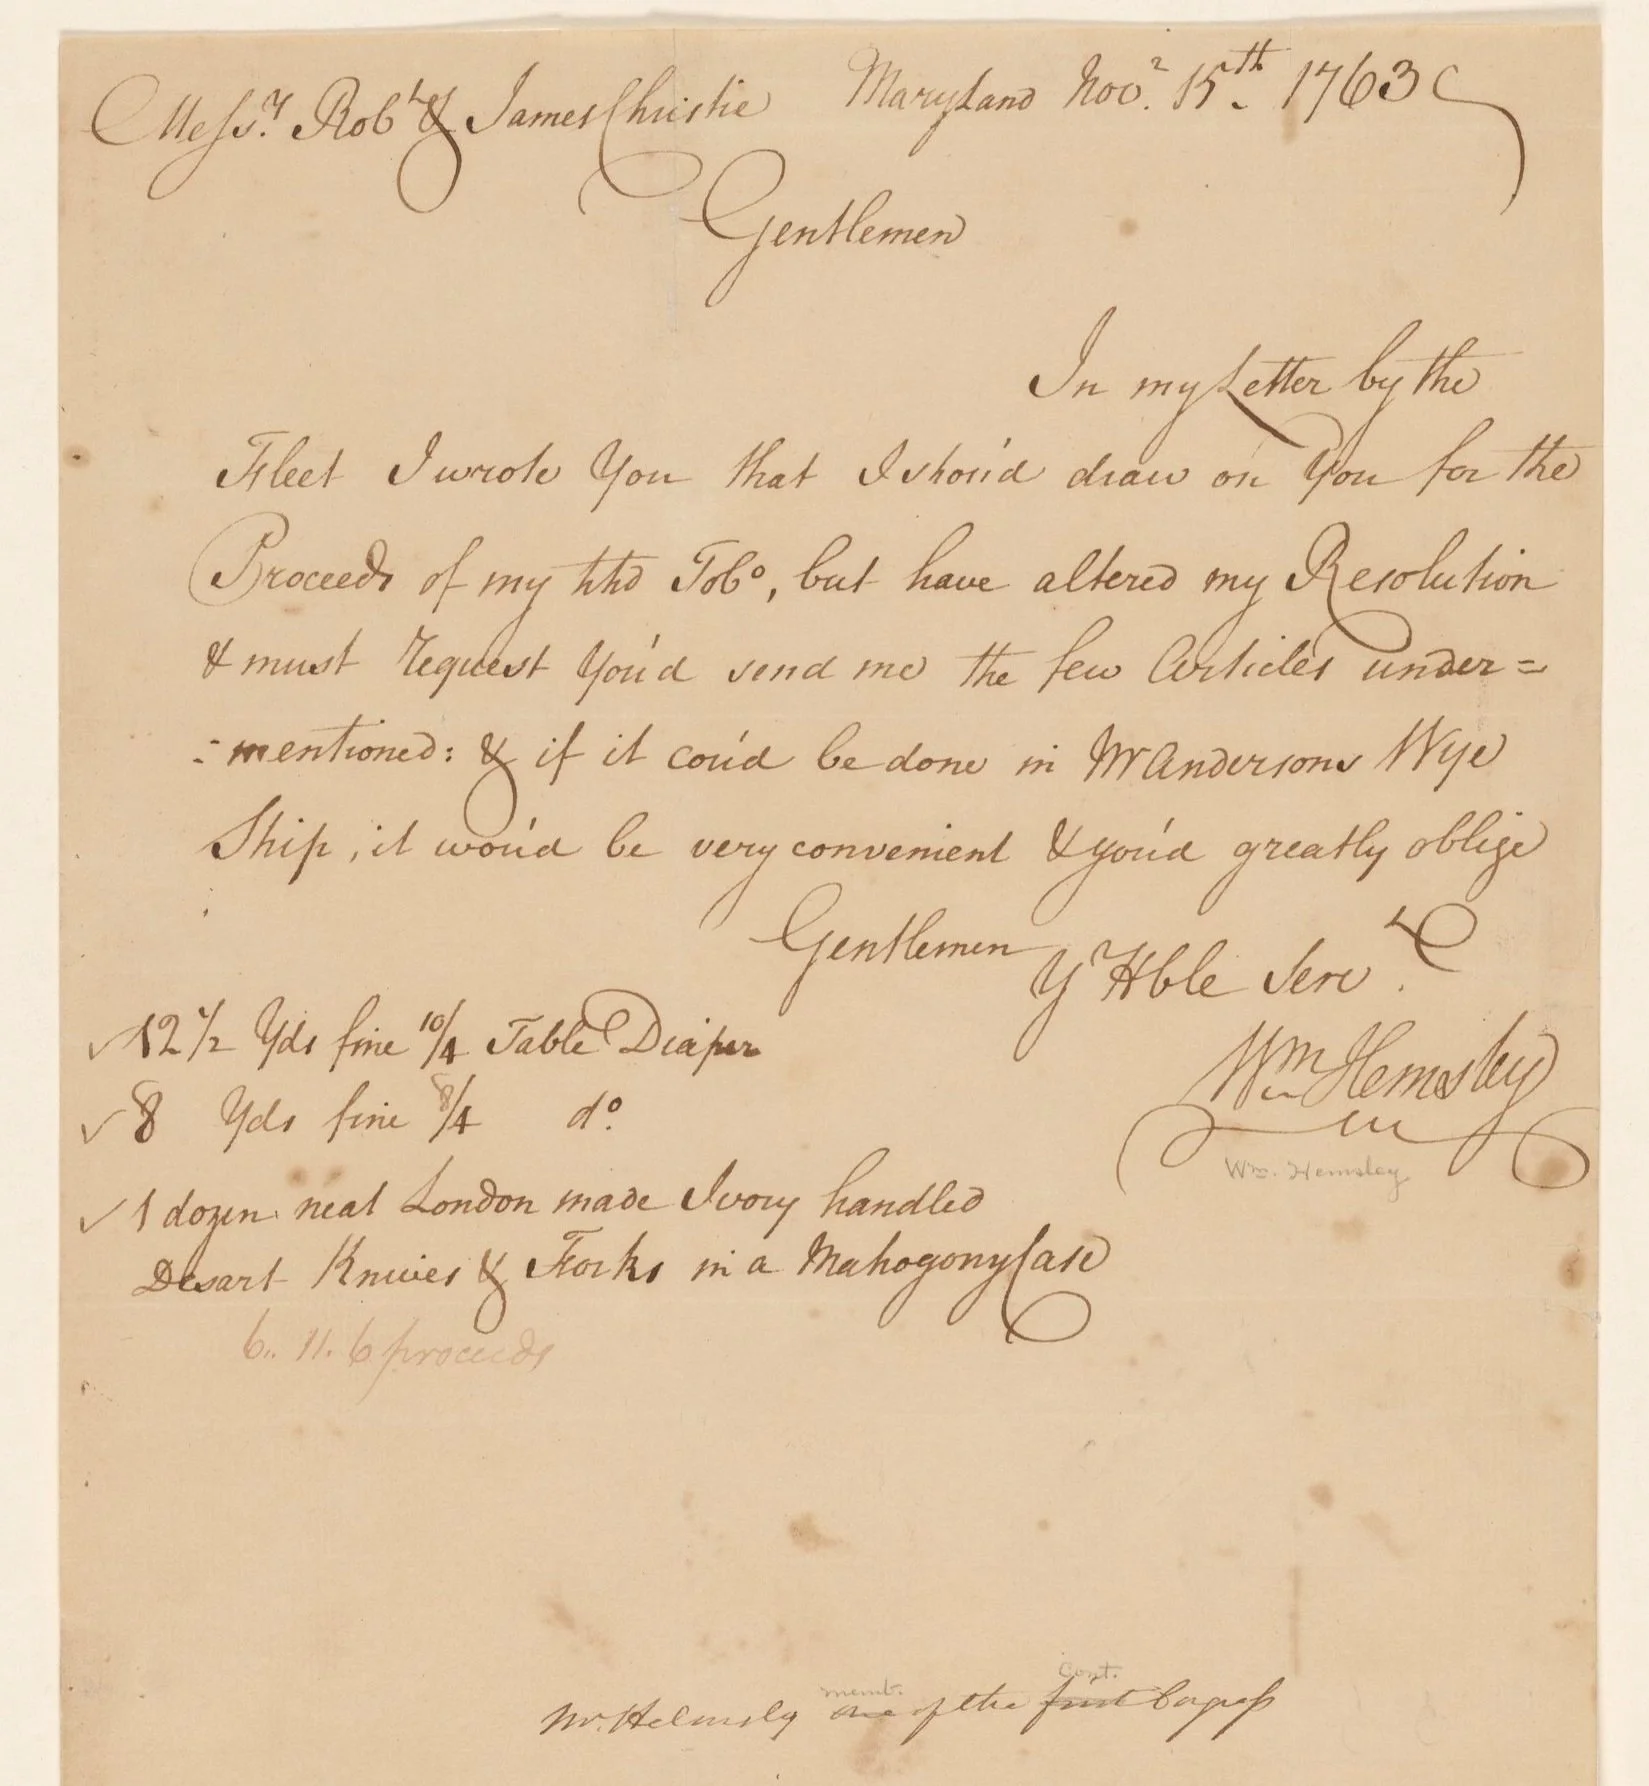 Messrs. Robt & James Christie Maryland Novr. 15th. 1763
Gentlemen
In my Letter by the
Fleet I wrote You that I shou'd draw on You for the
Proceeds of my hhd Tobo, but have altered my Resolution
& must request You'd send me the few Articles under=
=mentioned: & if it cou'd be done in Mr Andersons Wye
Ship, it wou'd be very convenient & you'd greatly oblige
Gentlemen
Yr Hble Servt.
Wm Hemsley
Wm. Hemsley
✓ 12 1/2 Yds fine 10/4 Table Diaper
✓ 8 Yds fine 8/4 do.
✓ 1 dozen neat London made Ivory handled
Desart Knives & Forks in a Mahogony Case
6.. 11. 6 proceeds
memb. Cont.
Mr. Helmsly one of the first Congress